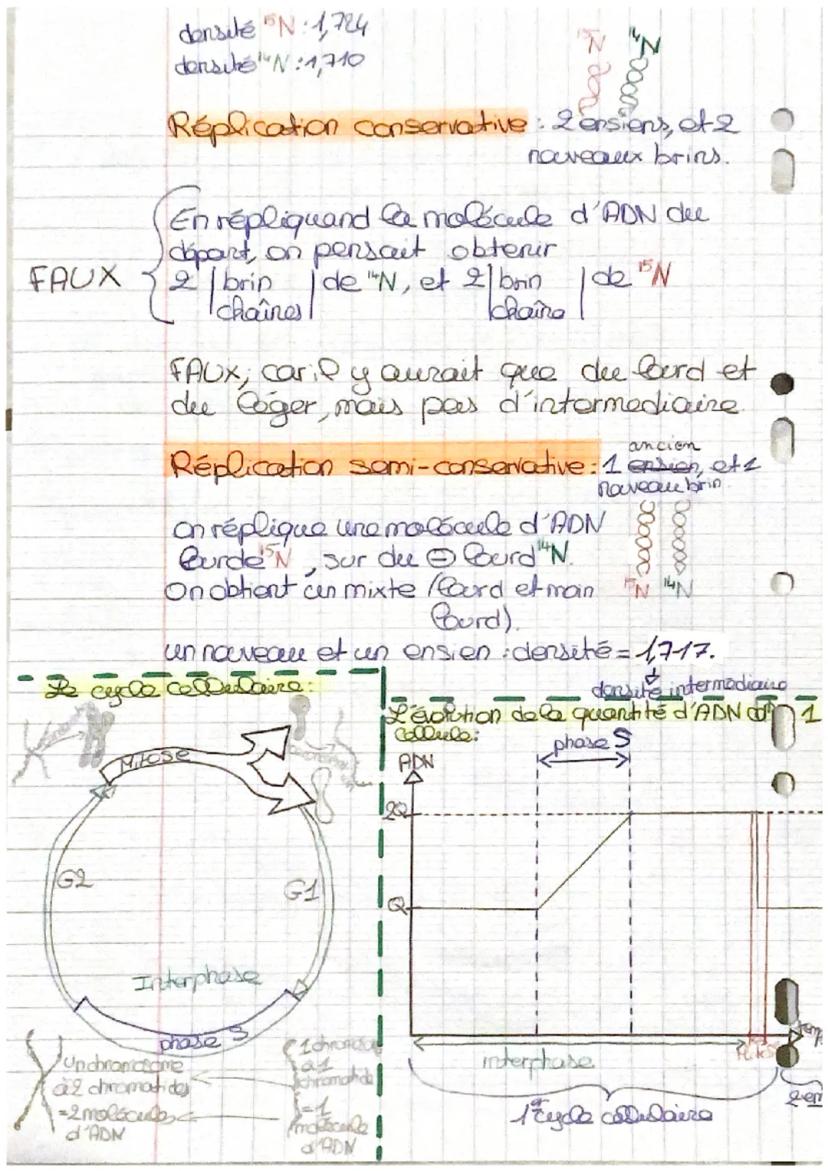 densité ¹⁵N : 1,724
densité ¹⁴N : 1,710
¹⁵N ¹⁴N
Réplication conservative : 2 ensiens, et 2
nouveaux brins.
En répliquand la molécule d'ADN du
départ, on pensait obtenir
FAUX
2 | brin | de ¹⁴N, et 2 | brin | de ¹⁵N
chaînes chaîne
FAUX, car il y aurait que du lourd et
du léger, mais pas d'intermediaire.
ancien
Réplication semi-conservative : 1 ensien, et 1
nouveau brin.
on réplique une molécule d'ADN
lourde ¹⁵N, sur du ⊖ lourd ¹⁴N.
On obtient un mixte (lourd et moin
lourd).
¹⁵N ¹⁴N
un nouveau et un ensien : densité = 1,717.
densité intermediaire
Le cycle cellulaire :
Mitose
G2
G1
Interphase
phase S
Un chromosome
à 2 chromatides
= 2 molécules
d'ADN
1 chromosome
à 1
chromatide
= 1
molécule
d'ADN
L'évolution de la quantité d'ADN 1
cellule :
phase S
ADN
2Q
Q
interphase
1er cycle cellulaire